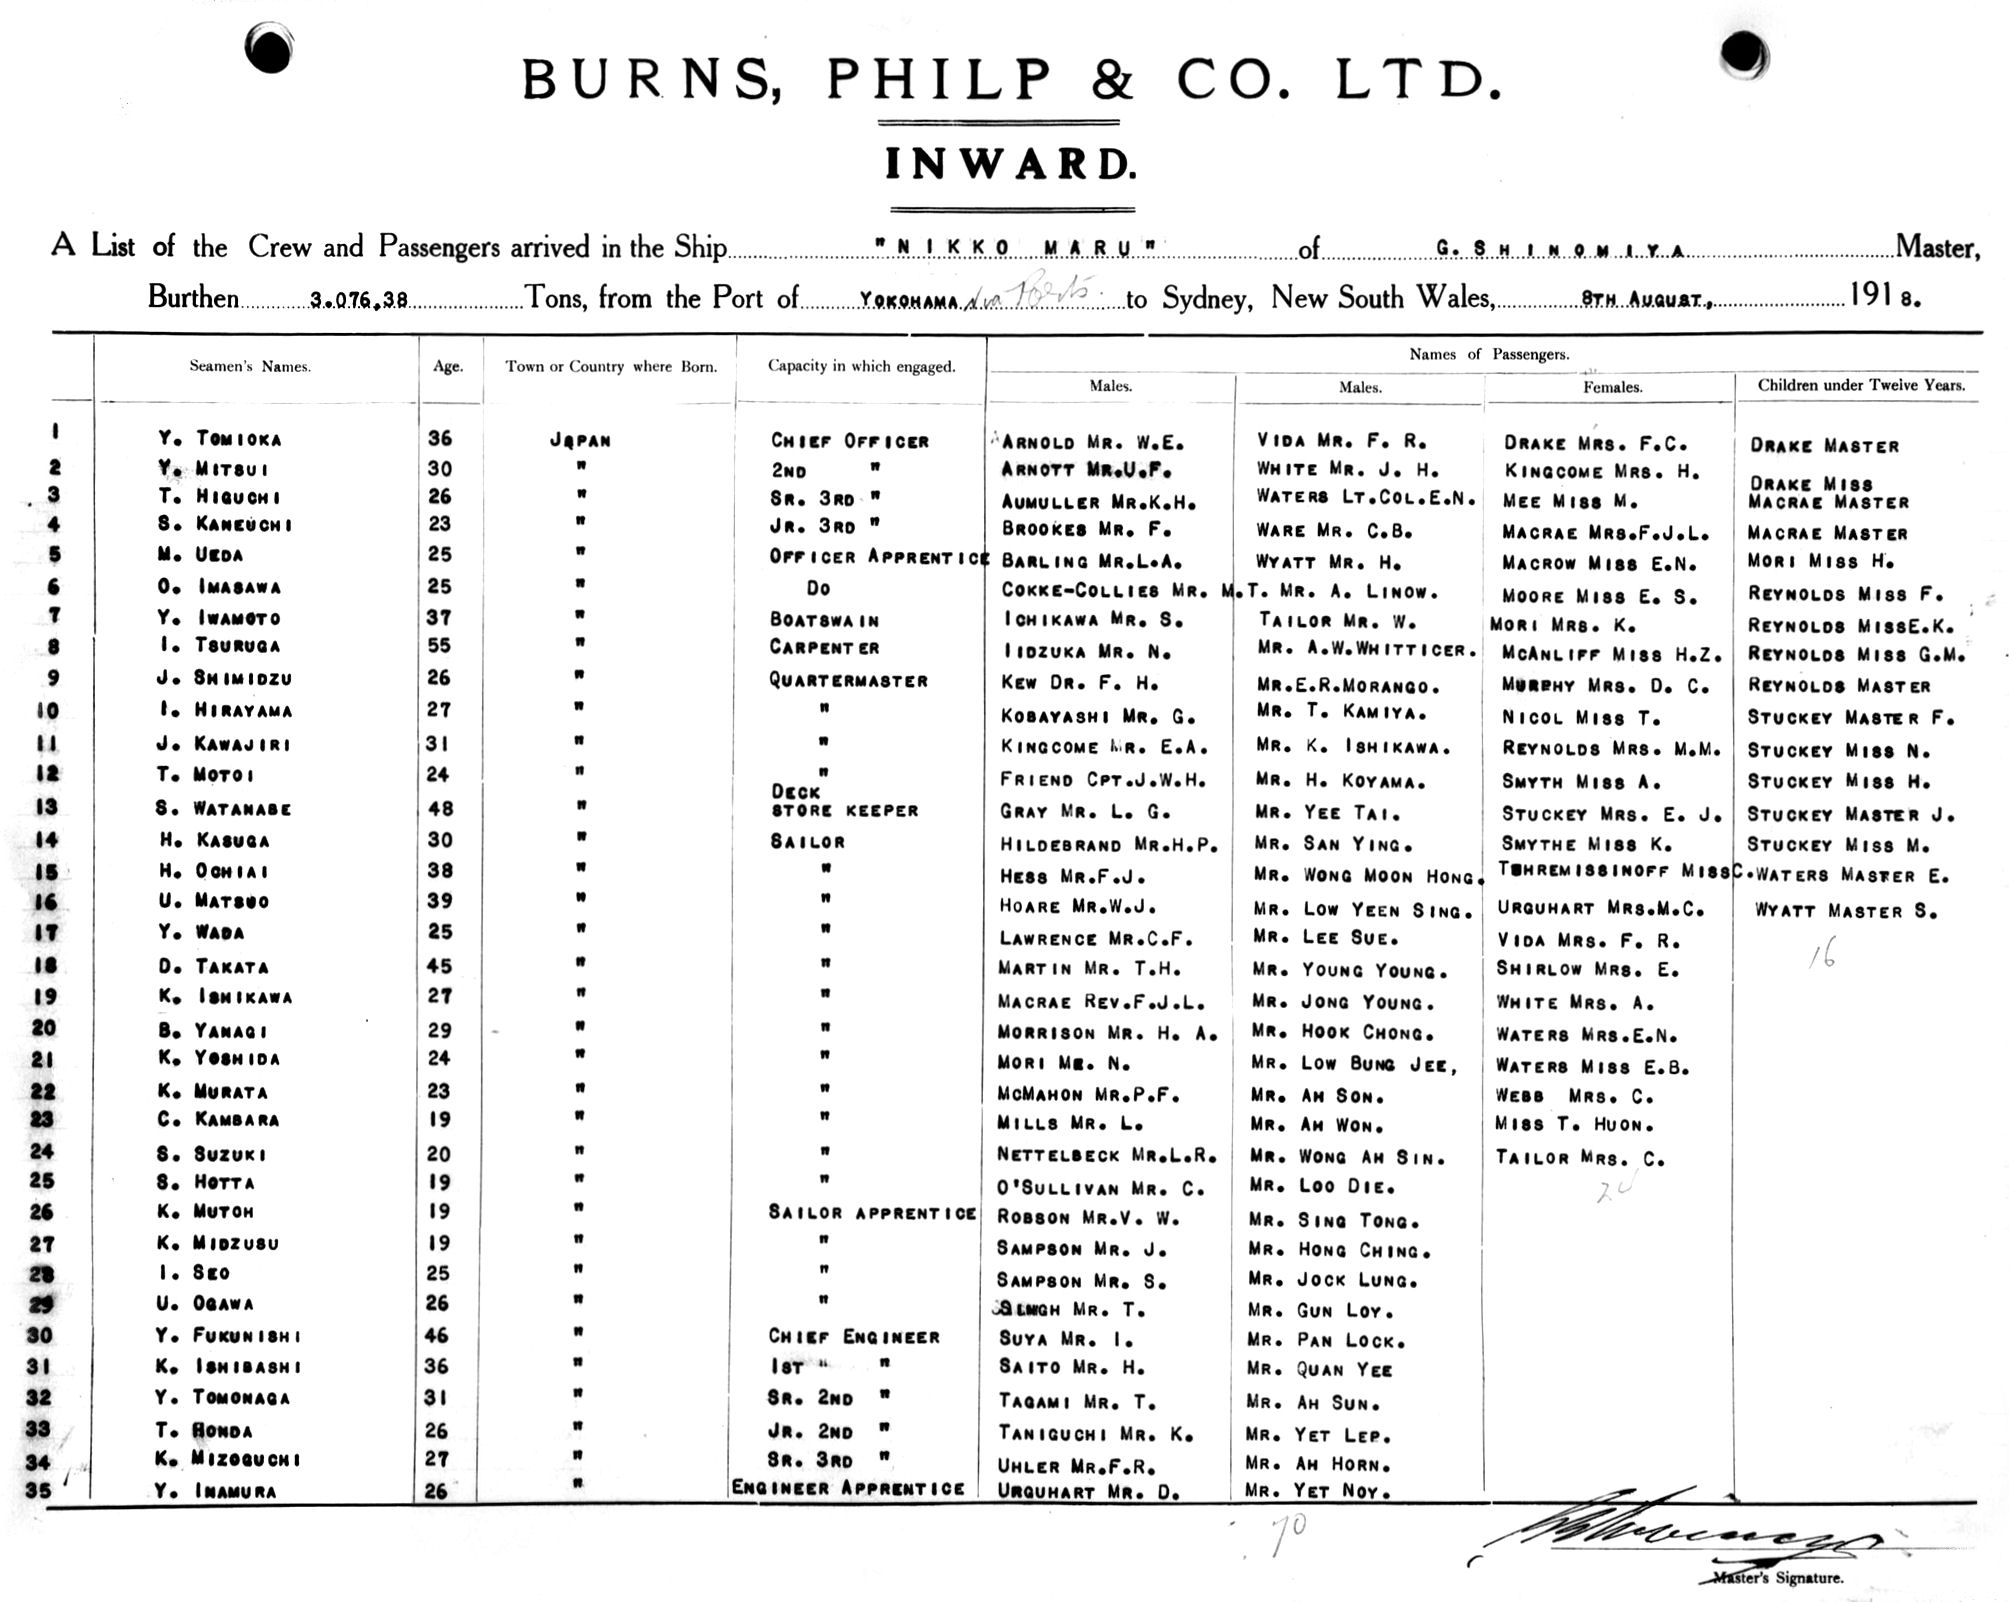 BURNS, PHILP & CO. LTD.
INWARD.
A List of the Crew and Passengers arrived in the Ship "NIKKO MARU" of G. SHINOMIYA Master,
Burthen 3.076.38 Tons, from the Port of YOKOHAMA via Ports. to Sydney, New South Wales, 8TH AUGUST., 1918.
Names of Passengers.
Seamen's Names. Age. Town or Country where Born. Capacity in which engaged. Males. Males. Females. Children under Twelve Years.
1 Y. TOMIOKA 36 JAPAN CHIEF OFFICER ARNOLD MR. W.E. VIDA MR. F. R. DRAKE MRS. F.C. DRAKE MASTER
2 Y. MITSUI 30 " 2ND " ARNOTT MR.U.F. WHITE MR. J. H. KINGCOME MRS. H. DRAKE MISS
3 T. HIGUCHI 26 " SR. 3RD " AUMULLER MR.K.H. WATERS LT.COL.E.N. MEE MISS M. MACRAE MASTER
4 S. KANEUCHI 23 " JR. 3RD " BROOKES MR. F. WARE MR. C.B. MACRAE MRS.F.J.L. MACRAE MASTER
5 M. UEDA 25 " OFFICER APPRENTICE BARLING MR.L.A. WYATT MR. H. MACROW MISS E.N. MORI MISS H.
6 O. IMASAWA 25 " DO COKKE-COLLIES MR. M.T. MR. A. LINOW. MOORE MISS E. S. REYNOLDS MISS F.
7 Y. IWAMOTO 37 " BOATSWAIN ICHIKAWA MR. S. TAILOR MR. W. MORI MRS. K. REYNOLDS MISSE.K.
8 I. TSURUGA 55 " CARPENTER IIDZUKA MR. N. MR. A.W.WHITTICER. MCANLIFF MISS H.Z. REYNOLDS MISS G.M.
9 J. SHIMIDZU 26 " QUARTERMASTER KEW DR. F. H. MR.E.R.MORANGO. MURPHY MRS. D. C. REYNOLDS MASTER
10 I. HIRAYAMA 27 " " KOBAYASHI MR. G. MR. T. KAMIYA. NICOL MISS T. STUCKEY MASTER F.
11 J. KAWAJIRI 31 " " KINGCOME MR. E.A. MR. K. ISHIKAWA. REYNOLDS MRS. M.M. STUCKEY MISS N.
12 T. MOTOI 24 " " FRIEND CPT.J.W.H. MR. H. KOYAMA. SMYTH MISS A. STUCKEY MISS H.
13 S. WATANABE 48 " DECK STORE KEEPER GRAY MR. L. G. MR. YEE TAI. STUCKEY MRS. E. J. STUCKEY MASTER J.
14 H. KASUGA 30 " SAILOR HILDEBRAND MR.H.P. MR. SAN YING. SMYTHE MISS K. STUCKEY MISS M.
15 H. OCHIAI 38 " " HESS MR.F.J. MR. WONG MOON HONG. MISSC. WATERS MASTER E.
16 U. MATSUO 39 " " HOARE MR.W.J. MR. LOW YEEN SING. URQUHART MRS.M.C. WYATT MASTER S.
17 Y. WADA 25 " " LAWRENCE MR.C.F. MR. LEE SUE. VIDA MRS. F. R. 16
18 D. TAKATA 45 " " MARTIN MR. T.H. MR. YOUNG YOUNG. SHIRLOW MRS. E.
19 K. ISHIKAWA 27 " " MACRAE REV.F.J.L. MR. JONG YOUNG. WHITE MRS. A.
20 B. YANAGI 29 " " MORRISON MR. H. A. MR. HOOK CHONG. WATERS MRS.E.N.
21 K. YOSHIDA 24 " " MORI MR. N. MR. LOW BUNG JEE, WATERS MISS E.B.
22 K. MURATA 23 " " MCMAHON MR.P.F. MR. AH SON. WEBB MRS. C.
23 C. KAMBARA 19 " " MILLS MR. L. MR. AH WON. MISS T. HUON.
24 S. SUZUKI 20 " " NETTELBECK MR.L.R. MR. WONG AH SIN. TAILOR MRS. C.
25 S. HOTTA 19 " " O'SULLIVAN MR. C. MR. LOO DIE.
26 K. MUTOH 19 " SAILOR APPRENTICE ROBSON MR.V. W. MR. SING TONG.
27 K. MIDZUSU 19 " " SAMPSON MR. J. MR. HONG CHING.
28 I. SEO 25 " " SAMPSON MR. S. MR. JOCK LUNG.
29 U. OGAWA 26 " " MR. T. MR. GUN LOY.
30 Y. FUKUNISHI 46 " CHIEF ENGINEER SUYA MR. I. MR. PAN LOCK.
31 K. ISHIBASHI 36 " 1ST " " SAITO MR. H. MR. QUAN YEE
32 Y. TOMONAGA 31 " SR. 2ND " TAGAMI MR. T. MR. AH SUN.
33 T. HONDA 26 " JR. 2ND " TANIGUCHI MR. K. MR. YET LEP.
34 K. MIZOGUCHI 27 " SR. 3RD " UHLER MR.F.R. MR. AH HORN.
35 Y. INAMURA 26 " ENGINEER APPRENTICE URQUHART MR. D. MR. YET NOY.
70
Master's Signature.